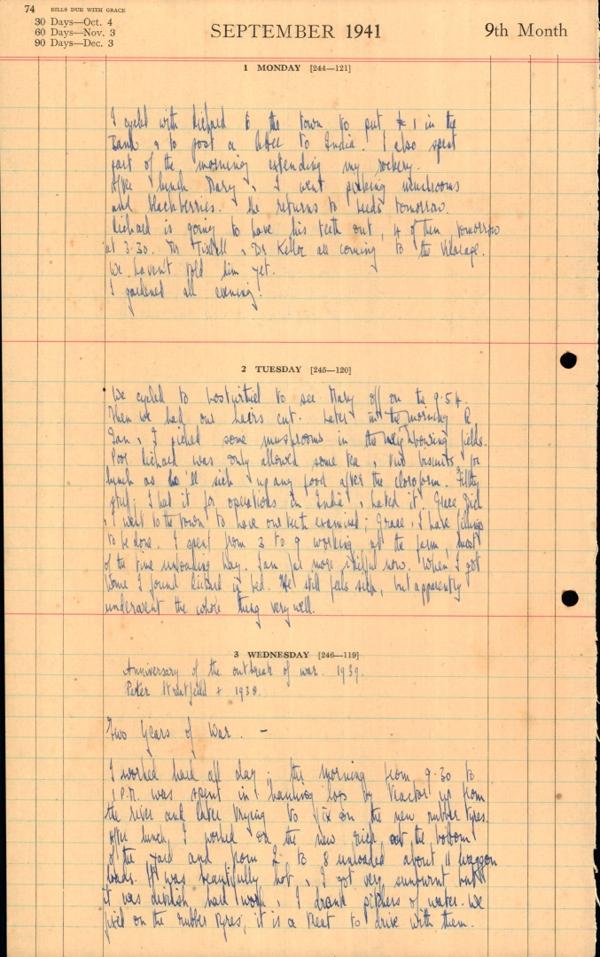 74 BILLS DUE WITH GRACE
30 Days—Oct. 4
60 Days—Nov. 3
90 Days—Dec. 3
SEPTEMBER 1941
9th Month
1 MONDAY [244—121]
I cycled with Richard to the town to put £1 in the
Bank & to post a letter to India. I also spent
part of the morning extending my rockery.
After lunch Mary & I went picking mushrooms
and blackberries. She returns to Leeds tomorrow.
Richard is going to have his teeth out, 4 of them tomorrow
at 3.30. Mr & Dr Kellor are coming to the Vicarage.
We haven't told him yet.
I gardened all evening.
2 TUESDAY [245—120]
We cycled to Lostwithiel to see Mary off on the 9.54.
Then we had our hairs cut. Later in the morning R
Ian & I picked some mushrooms in the neighbouring fields.
Poor Richard was only allowed some tea & two biscuits for
lunch as he'll sick up any food after the cloroform. Filthy
stuff, I had it for operations in India & hated it. Grace,
& I went to the town to have our teeth examined; Grace & I have fillings
to be done. I spent from 3 to 9 working at the farm, most
of the time unloading hay. I am far more skilful now. When I got
home I found Richard in bed. He still feels sick, but apparently
underwent the whole thing very well.
3 WEDNESDAY [246—119]
Anniversary of the outbreak of war. 1939.
Peter + 1938.
Two Years of War. —
I worked hard all day; the morning from 9.30 to
1 P.M. was spent in hauling logs by tractor up from
the river and later trying to fix on the new rubber tyres.
After lunch, I worked on the new rick at the bottom
of the yard and from 2 to 8 unloaded about 11 waggon
loads. It was beautifully hot, & I got very sunburnt but
it was devilish hard work & I drank pitchers of water. We
fixed on the rubber tyres, it is a treat to drive with them.